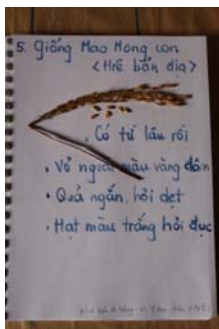 5. Giống Mao Mong con
<Hrê bản địa>
. Có từ lâu rồi
. Vỏ ngoài màu vàng đậm
. Quả ngắn, hơi dẹt
. Hạt màu trắng hơi đục